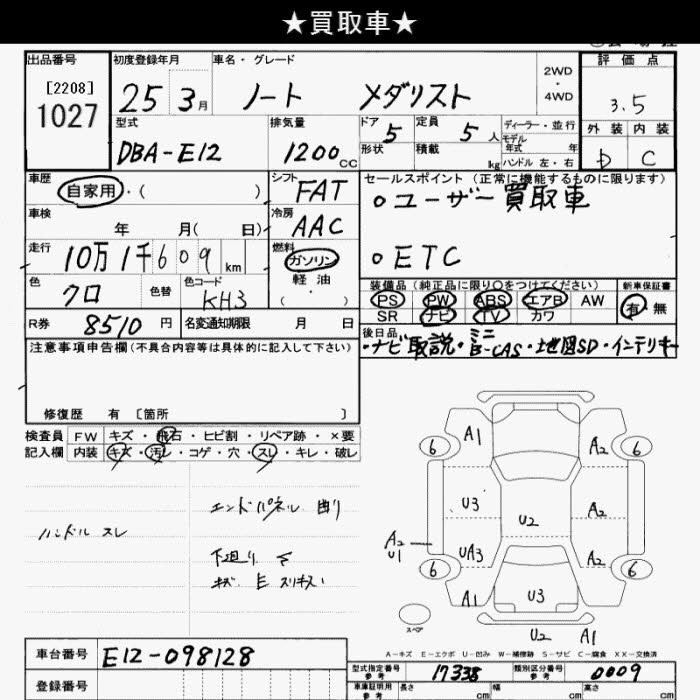 ★買取車★
出品番号 初度登録年月 車名・グレード 2WD・4WD 評価点
[2208]
1027
25 3月 ノート メダリスト 3.5
型式 排気量 ドア 定員 ディーラー・並行 外装 内装
5 5人 モデル年式 年
DBA-E12 1200cc 形状 積載 kg ハンドル 左・右 D C
車歴 シフト セールスポイント(正常に機能するものに限ります)
自家用・( ) FAT ○ユーザー買取車
車検 年 月( 日) 冷房 AAC
走行 10万1千609km 燃料 ガソリン ○ETC
軽油
( ・ )
色 クロ 色替 色コード KH3
装備品(純正品に限り○をつけてください) 新車保証書
PS PW ABS エアB AW 有・無
SR ナビ TV カワ
R券 8510円 名変通知期限 月 日
後日品
・ナビ取説・ミニB-CAS・地図SD・インテリキー
注意事項申告欄(不具合内容等は具体的に記入して下さい)
修復歴 有 [箇所 ]
検査員 FW キズ・飛石・ヒビ割・リペア跡・×要
記入欄 内装 キズ・汚レ・コゲ・穴・スレ・キレ・破レ
エンドパネル 曲り
ハンドル スレ
下廻り サ
キズ
A1
6 A2 6
U3 A2
U2
A2
U1
UA3 A2
6 6
A1 U3 A1
スペア
U2 A1
A-キズ E-エクボ U-凹み W-補修跡 S-サビ C-腐食 XX-交換済
車台番号 E12-098128
型式指定番号 参考 17338 類別区分番号 参考 0009
登録番号
車庫証明用 参考 長さ cm 幅 cm 高さ cm